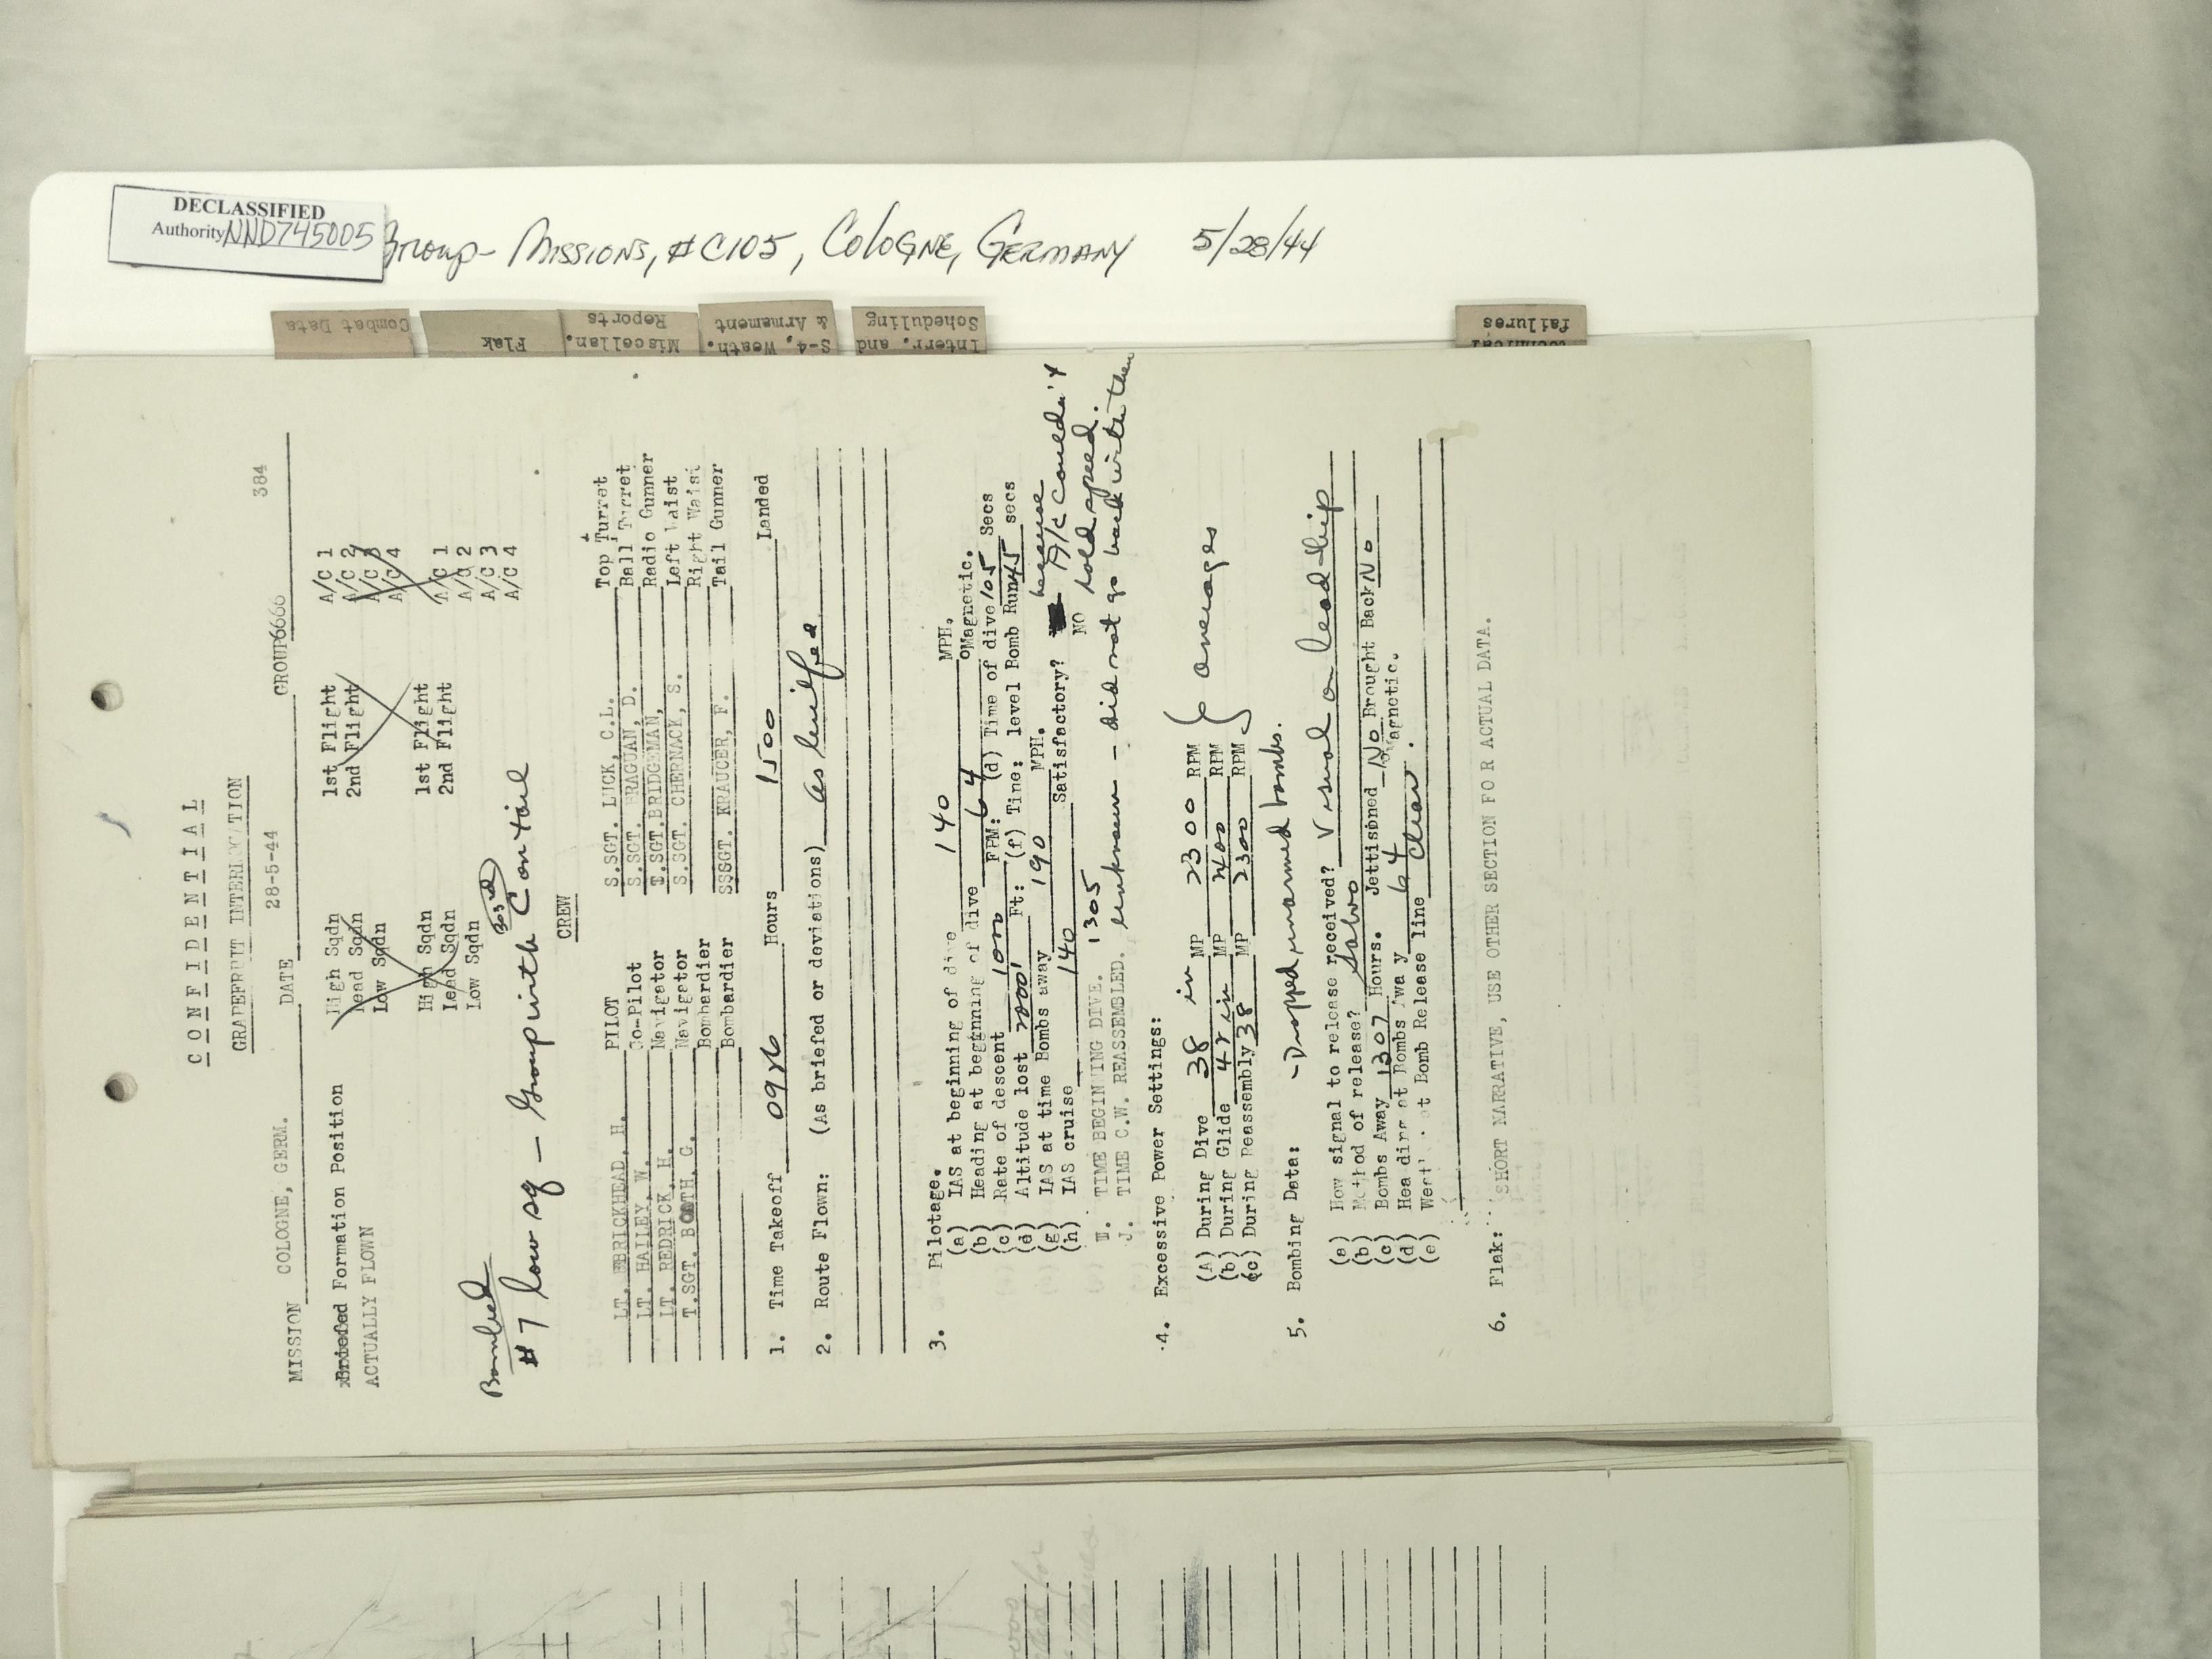 DECLASSIFIED
Authority NND745005
Group- Missions, #C105, Cologne, Germany 5/28/44
Combat Data
Flak
Miscellan.
Reports
S-4, Weath.
& Armament
Interr. and
Scheduling
failures
CONFIDENTIAL
GRAPEFRUIT INTERROGATION
384
MISSION COLOGNE, GERM. DATE 28-5-44 GROUP
Briefed Formation Position High Sqdn 1st Flight A/C 1
ACTUALLY FLOWN Lead Sqdn 2nd Flight A/C 2
Low Sqdn A/C 3
A/C 4
High Sqdn 1st Flight A/C 1
Lead Sqdn 2nd Flight A/C 2
Low Sqdn A/C 3
A/C 4
Bombed
303rd
#7 low sq - Group with C on tail
CREW
LT. BRICKHEAD, H. PILOT S.SGT. LUCK, C.L. Top Turret
LT. HAILEY, W. Co-Pilot S.SGT. FRAGUAN, D. Ball Turret
LT. REDRICK, H. Navigator T.SGT. BRIDGEMAN, Radio Gunner
T.SGT. BOOTH, G. Navigator S.SGT. CHERNACK, S. Left Waist
Bombardier Right Waist
Bombardier SSSGT. KRAUCER, F. Tail Gunner
1. Time Takeoff 0926 Hours 1500 Landed
2. Route Flown: (As briefed or deviations) as briefed
3. Pilotage.
(a) IAS at beginning of dive 140 MPH.
(b) Heading at beginning of dive 64 oMagnetic.
(c) Rate of descent 1000 FPM: (d) Time of dive 105 Secs
(e) Altitude lost 2000' Ft: (f) Time: level Bomb Run 45 secs
(g) IAS at time Bombs away 190 MPH.
(h) IAS cruise 140 Satisfactory? NO because A/C couldn't hold speed.
I. TIME BEGINNING DIVE. 1305
J. TIME C.W. REASSEMBLED. unknown - did not go back with them
4. Excessive Power Settings:
(A) During Dive 38 in MP 2300 RPM
(b) During Glide 42 in MP 2400 RPM averages
(c) During Reassembly 38 MP 2300 RPM
5. Bombing Data: - Dropped unarmed bombs.
(a) How signal to release received? Visual on lead ship
(b) Method of release? Salvo
(c) Bombs Away 1307 Hours. Jettisoned No Brought Back No
(d) Heading at Bombs Away 64 Magnetic.
(e) Weather at Bomb Release line Clear.
6. Flak: SHORT NARRATIVE, USE OTHER SECTION FOR ACTUAL DATA.